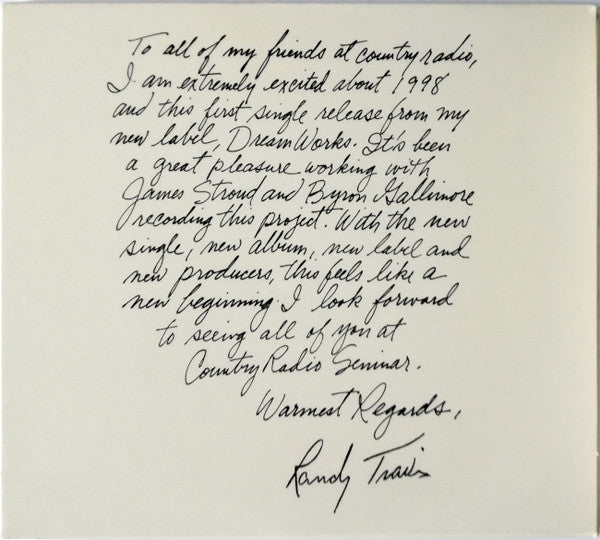 To all of my friends at country radio,
I am extremely excited about 1998
and this first single release from my
new label, DreamWorks. It's been
a great pleasure working with
James Stroud and Byron Gallimore
recording this project. With the new
single, new album, new label and
new producers, this feels like a
new beginning. I look forward
to seeing all of you at
Country Radio Seminar.
Warmest Regards,
Randy Travis